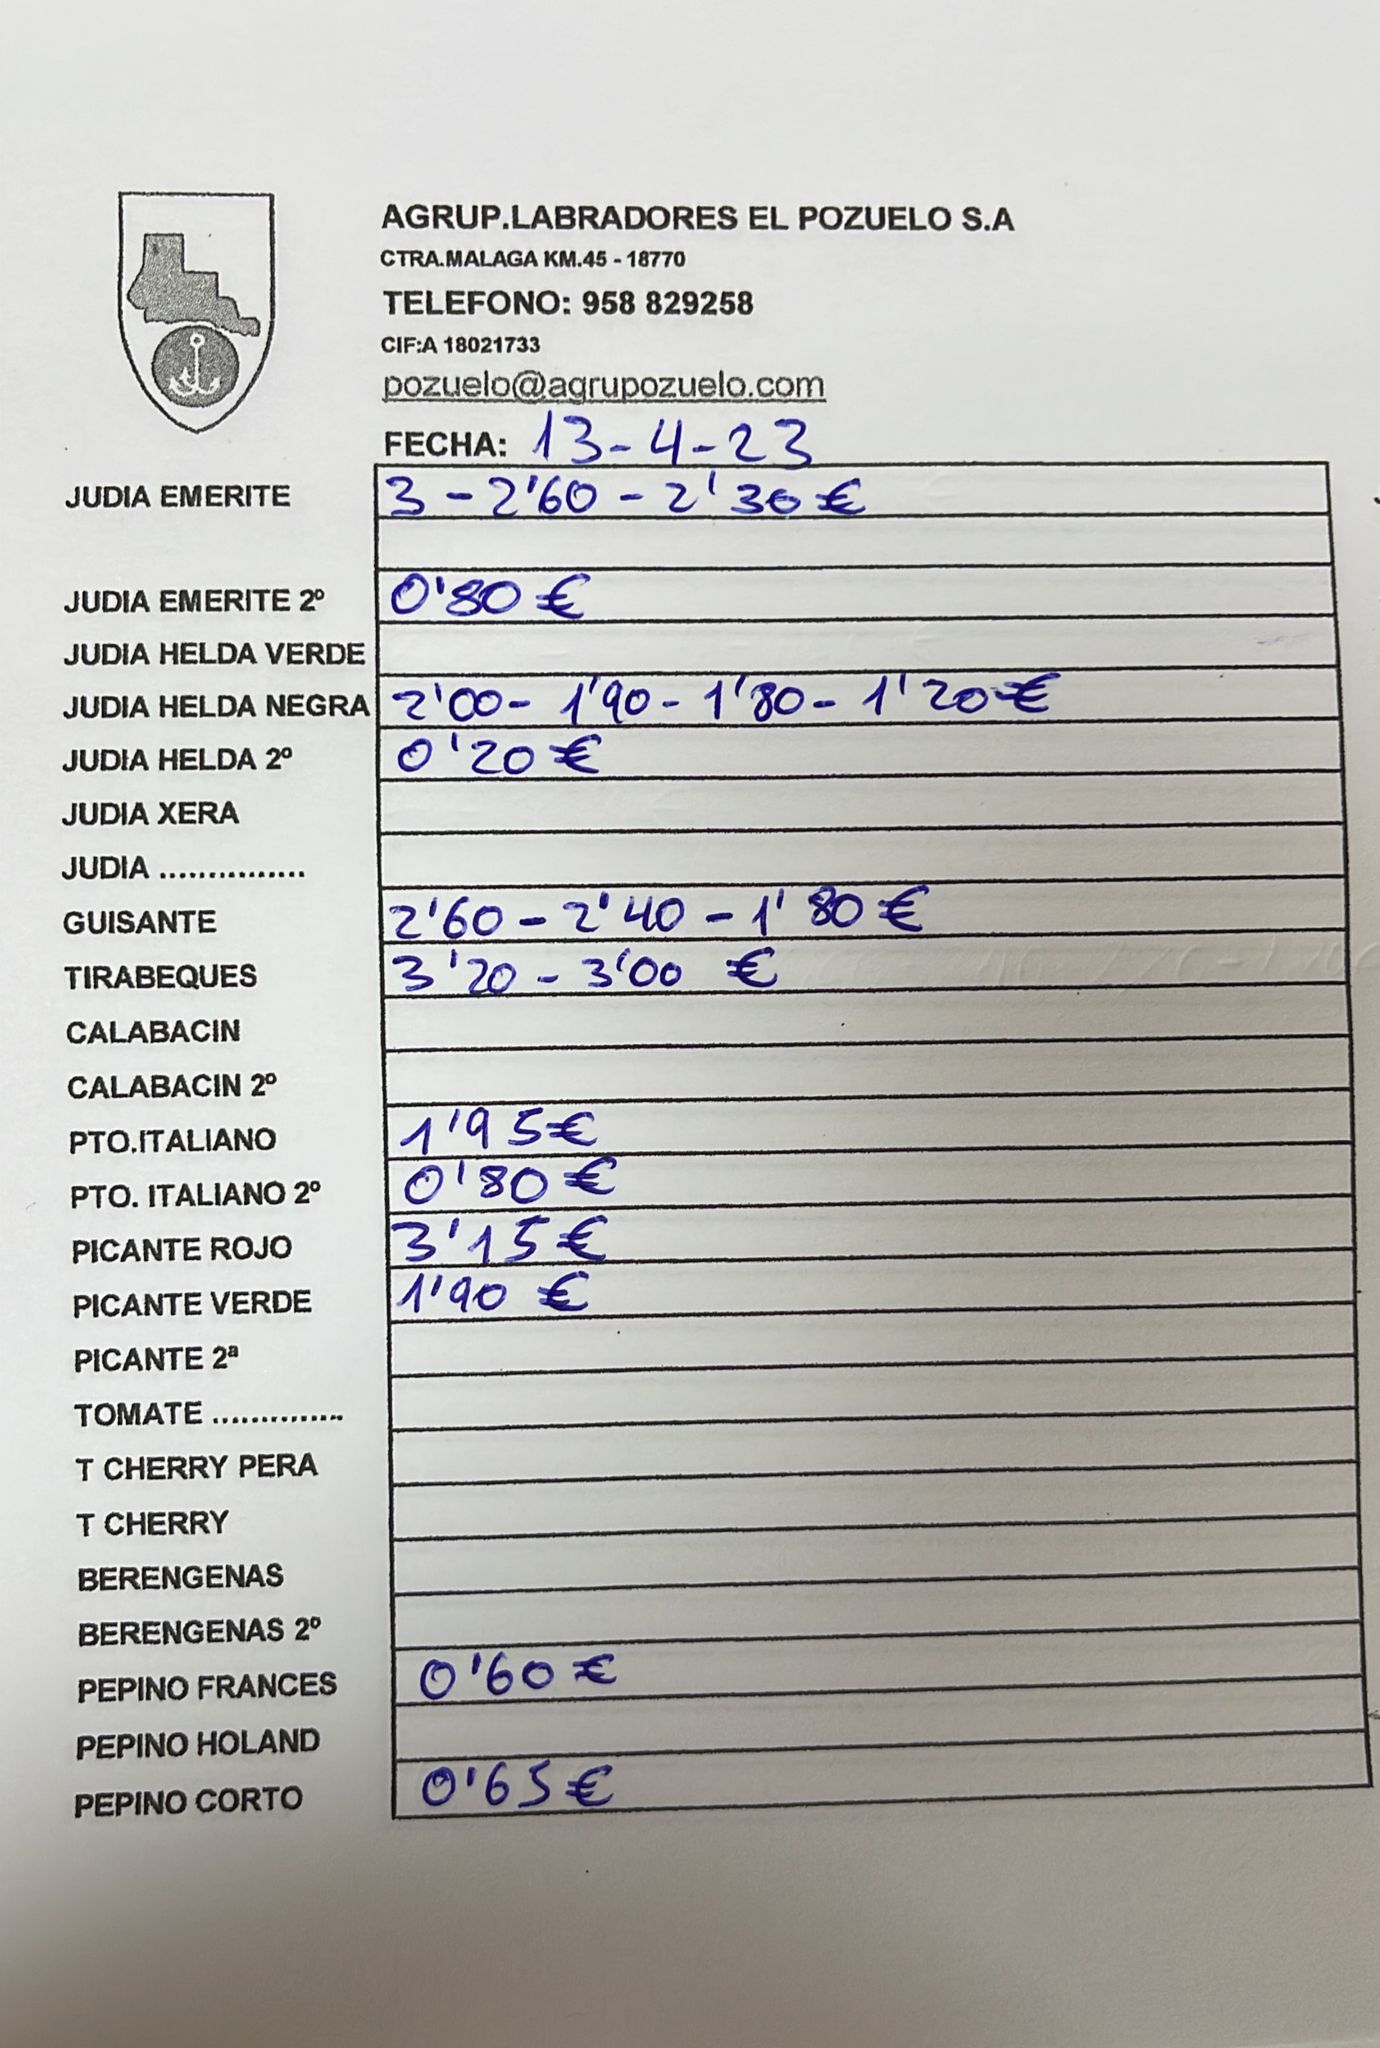 AGRUP.LABRADORES EL POZUELO S.A
CTRA.MALAGA KM.45 - 18770
TELEFONO: 958 829258
CIF:A 18021733
pozuelo@agrupozuelo.com
FECHA: 13-4-23
JUDIA EMERITE 3 - 2'60 - 2'30 €
JUDIA EMERITE 2º 0'80 €
JUDIA HELDA VERDE
JUDIA HELDA NEGRA 2'00 - 1'90 - 1'80 - 1'20 €
JUDIA HELDA 2º 0'20 €
JUDIA XERA
JUDIA ...............
GUISANTE 2'60 - 2'40 - 1'80 €
TIRABEQUES 3'20 - 3'00 €
CALABACIN
CALABACIN 2º
PTO.ITALIANO 1'95 €
PTO. ITALIANO 2º 0'80 €
PICANTE ROJO 3'15 €
PICANTE VERDE 1'90 €
PICANTE 2ª
TOMATE ..............
T CHERRY PERA
T CHERRY
BERENGENAS
BERENGENAS 2º
PEPINO FRANCES 0'60 €
PEPINO HOLAND
PEPINO CORTO 0'65 €